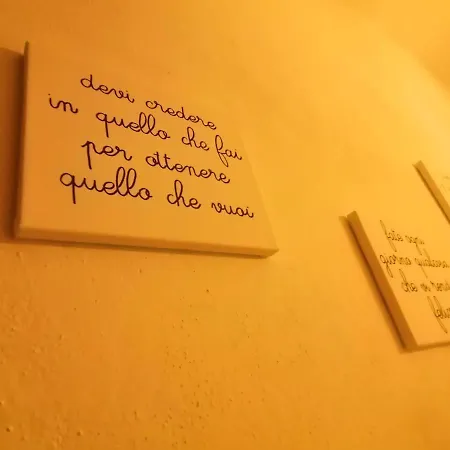 devi credere
in quello che fai
per ottenere
quello che vuoi
fate ogni
giorno qualcosa
che vi renda
felici